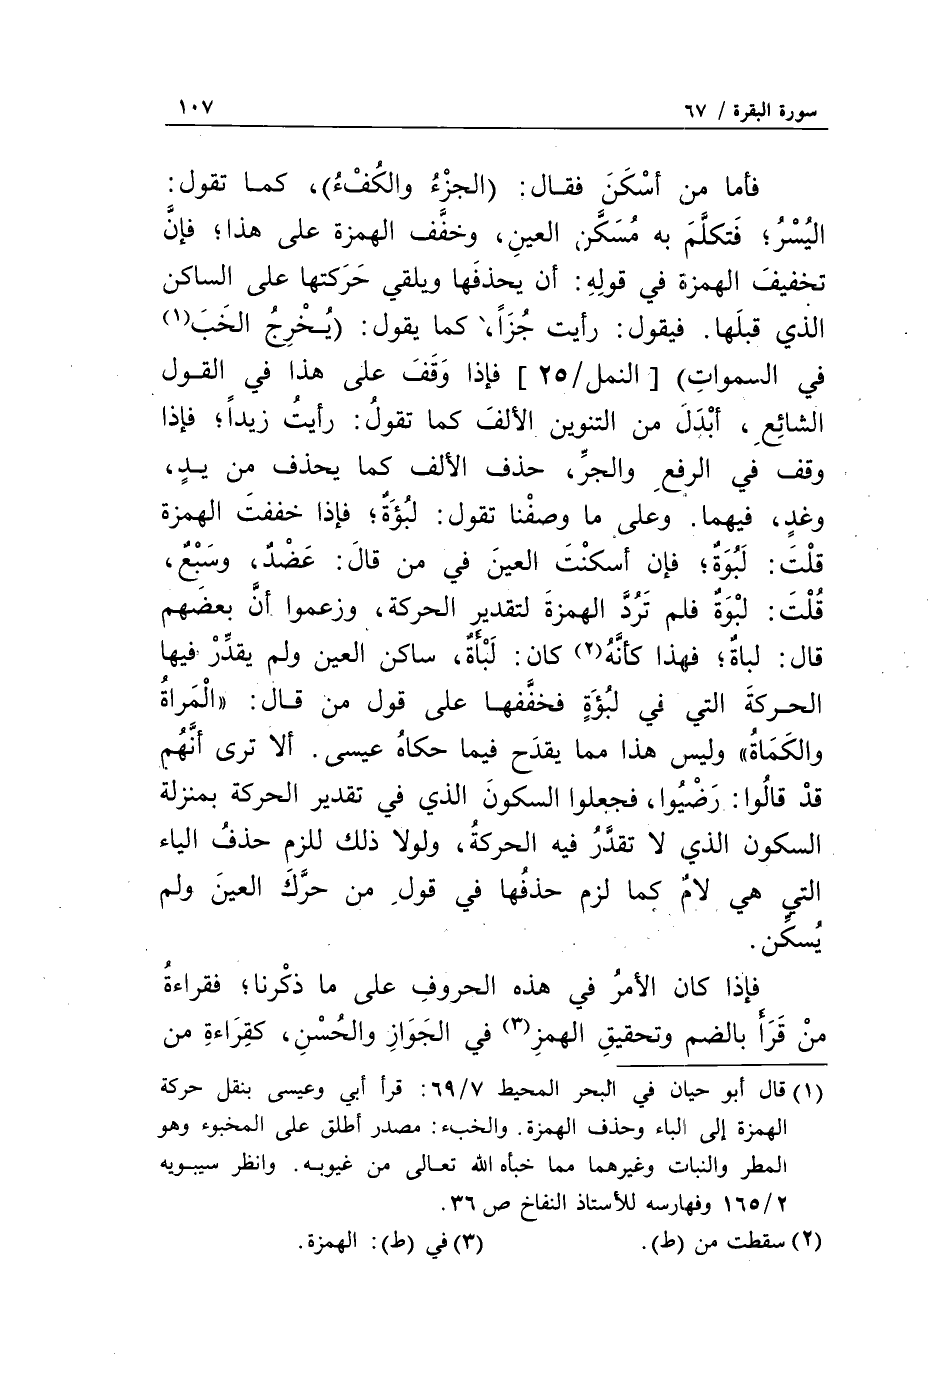 سورة البقرة / ٦٧ ١٠٧
فأما من أسْكَنَ فقال: (الجزْءُ والكُفْءُ)، كما تقول:
اليُسْرُ؛ فَتكلَّمَ به مُسَكَّن العينِ، وخفَّف الهمزة على هذا؛ فإنَّ
تخفيفَ الهمزة في قولِهِ: أن يحذفَها ويلقي حَرَكتها على الساكن
الذي قبلَها. فيقول: رأيت جُزَاً، كما يقول: (يُخْرِجُ الخَبَ(١)
في السمواتِ) [النمل/٢٥] فإذا وَقَفَ على هذا في القول
الشائِعِ، أبْدَلَ من التنوين الألفَ كما تقولُ: رأيتُ زيداً؛ فإذا
وقف في الرفعِ والجرِّ، حذف الألف كما يحذف من يدٍ،
وغدٍ، فيهما. وعلى ما وصفْنا تقول: لَبُؤَةٌ؛ فإذا خففتَ الهمزة
قلْتَ: لَبُوَةٌ؛ فإن أسكنْتَ العينَ في من قالَ: عَضْدٌ، وسَبْعٌ،
قُلْتَ: لبْوَةٌ فلم تَرُدَّ الهمزةَ لتقديرِ الحركة، وزعموا أنَّ بعضَهم
قال: لباةٌ؛ فهذا كأنَّهُ(٢) كان: لَبْأَةٌ، ساكن العين ولم يقدِّرْ فيها
الحركةَ التي في لبُؤَةٍ فخفَّفها على قول من قال: «الْمَراةُ
والكَمَاةُ» وليس هذا مما يقدَح فيما حكاهُ عيسى. ألا ترى أنَّهُم
قدْ قالُوا: رَضْيُوا، فجعلوا السكونَ الذي في تقدير الحركة بمنزلة
السكون الذي لا تقدَّرُ فيه الحركةُ، ولولا ذلك للزم حذفُ الياء
التي هي لامٌ كما لزم حذفُها في قولِ من حرَّكَ العينَ ولم
يُسكِّن.
فإذا كان الأمرُ في هذه الحروفِ على ما ذكْرنا؛ فقراءةُ
منْ قَرَأَ بالضم وتحقيقِ الهمزِ(٣) في الجَوَازِ والحُسْنِ، كقِرَاءةِ من
(١) قال أبو حيان في البحر المحيط ٦٩/٧: قرأ أبي وعيسى بنقل حركة
الهمزة إلى الباء وحذف الهمزة. والخبء: مصدر أطلق على المخبوء وهو
المطر والنبات وغيرهما مما خبأه الله تعالى من غيوبه. وانظر سيبويه
١٦٥/٢ وفهارسه للأستاذ النفاخ ص ٣٦.
(٢) سقطت من (ط). (٣) في (ط): الهمزة.